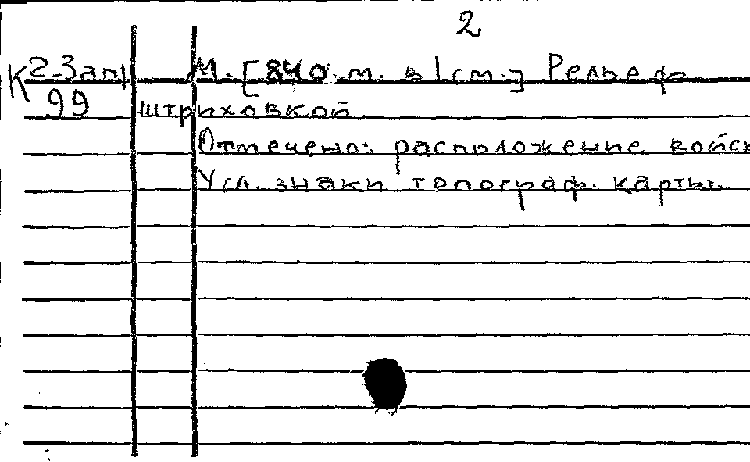 2
К 2-Зап М. [840 м. в 1 см.] Рельеф
99 штриховкой
Отмечено: расположение войск
Усл. знаки топограф. карты.